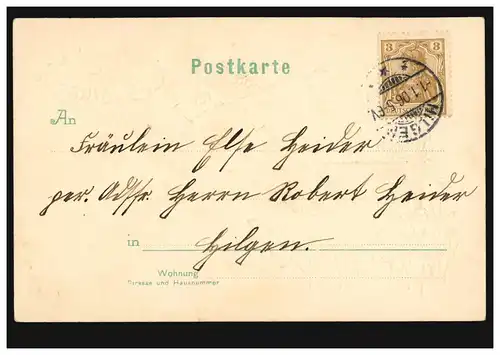 Postkarte
3 3
HILGEN
1.1.06.5-6V
An
Fräulein Else Heider
per. Adsr. Herrn Robert Heider
in Hilgen.
Wohnung
Strasse und Hausnummer